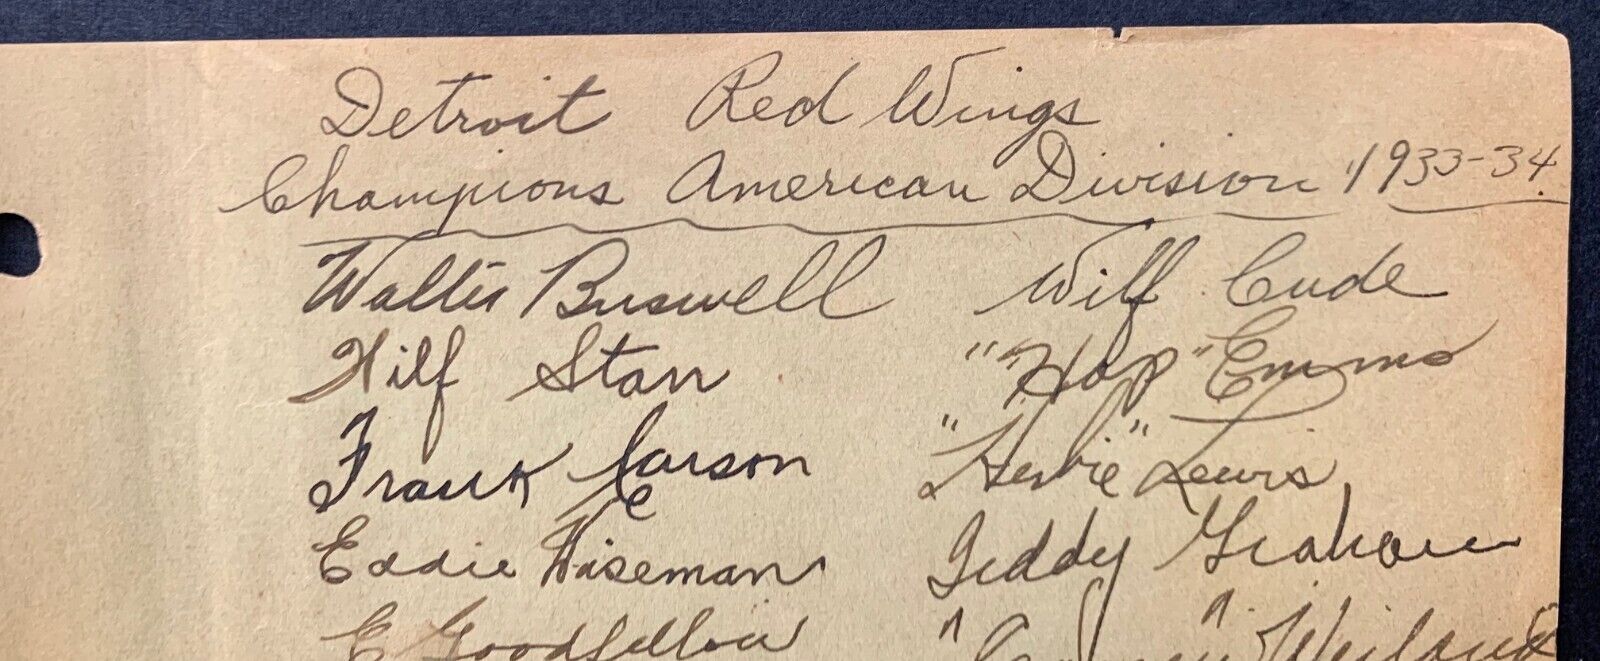 Detroit Red Wings
Champions American Division 1933-34.
Walter Buswell Wilf Cude
Wilf Starr "Hap" Emms
Frank Carson "Herbie" Lewis
Eddie Wiseman Teddy Graham
E Goodfellow " " Weiland